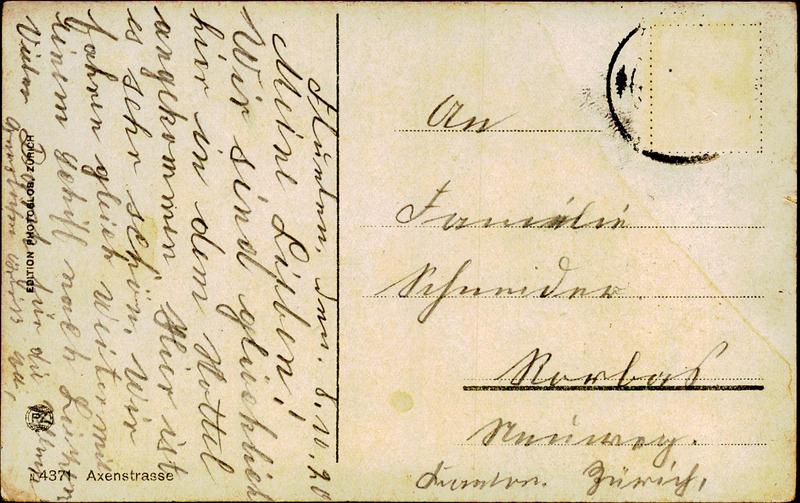 Flüelen, den. 8.10.20
Meine Lieben!
Wir sind glücklich
hier in dem Hottel
angekommen Hier ist
es sehr schön. Wir
fahren gleich weiter mit
einem Schiff nach
für die
Vielen
An
Familie
Schneider.
Rorbas
Neuweg.
Kanton. Zürich,
EDITION PHOTOGLOB, ZÜRICH
4371 Axenstrasse